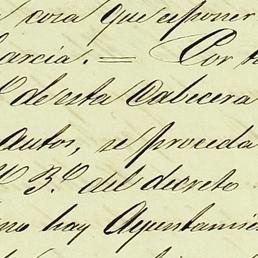 cosa que esponer
Garcia. = Por
decreta Cabecera
autos, se proceda
3.º del decreto
no hay Ayuntamie